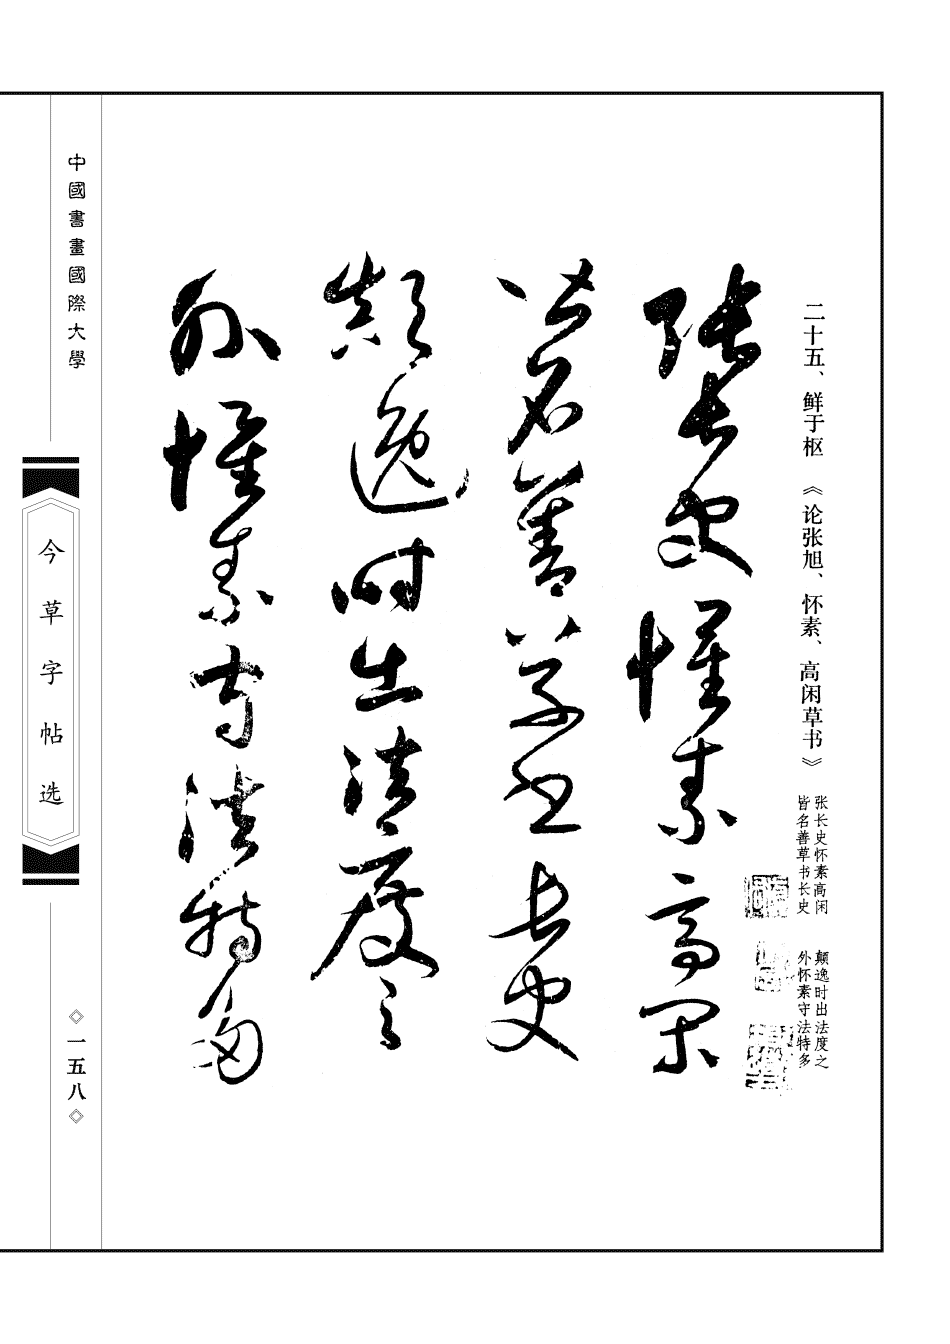 二十五、鲜于枢 《论张旭、怀素、高闲草书》
张长史怀素高闲
皆名善草书长史
颠逸时出法度之
外怀素守法特多
張長史懷素高閑
皆名善草書長史
顛逸時出法度之
外懷素守法特多
中國書畫國際大學
今草字帖选
一五八